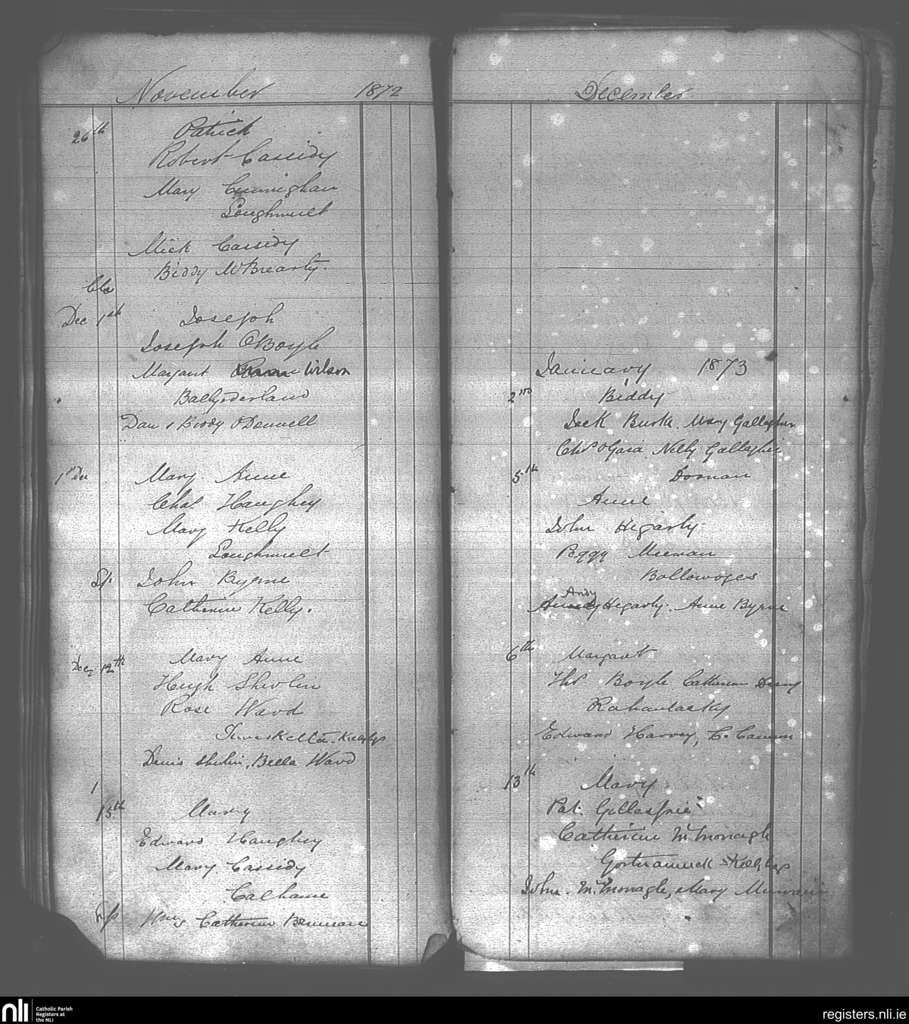 November 1872
26th Patrick
Robert Cassidy
Mary Cunnighan
Loughmult
Mick Cassidy
Biddy McBrearty.
Dec 1st Joseph
Joseph O'Boyle
Margaret Wilson
Ballyederland
Dan & Biddy O'Donnell
1st Dec Mary Anne
Chas Haughey
Mary Kelly
Loughmult
Sp. John Byrne
Catherine Kelly.
Dec 12th Mary Anne
Hugh Shevlin
Rose Ward
Denis Shevlin, Bella Ward
1
15th Mary
Edward Haughey
Mary Cassidy
Calhame
Sp Catherine
December
January 1873
2nd Biddy
Jack Burk. Mary Gallagher
Chs O'Gara, Nelly Gallagher
5th Doonan
Anne
John Hegarty
Peggy Meenan
Andy
Hegarty. Anne Byrne
6th Margaret
Ths Boyle Catherine
Edward Harvey, C.
13th Mary
Pat. Gillespie
Catherine McMonagle
John. McMonagle, Mary
nli Catholic Parish Registers at the NLI
registers.nli.ie